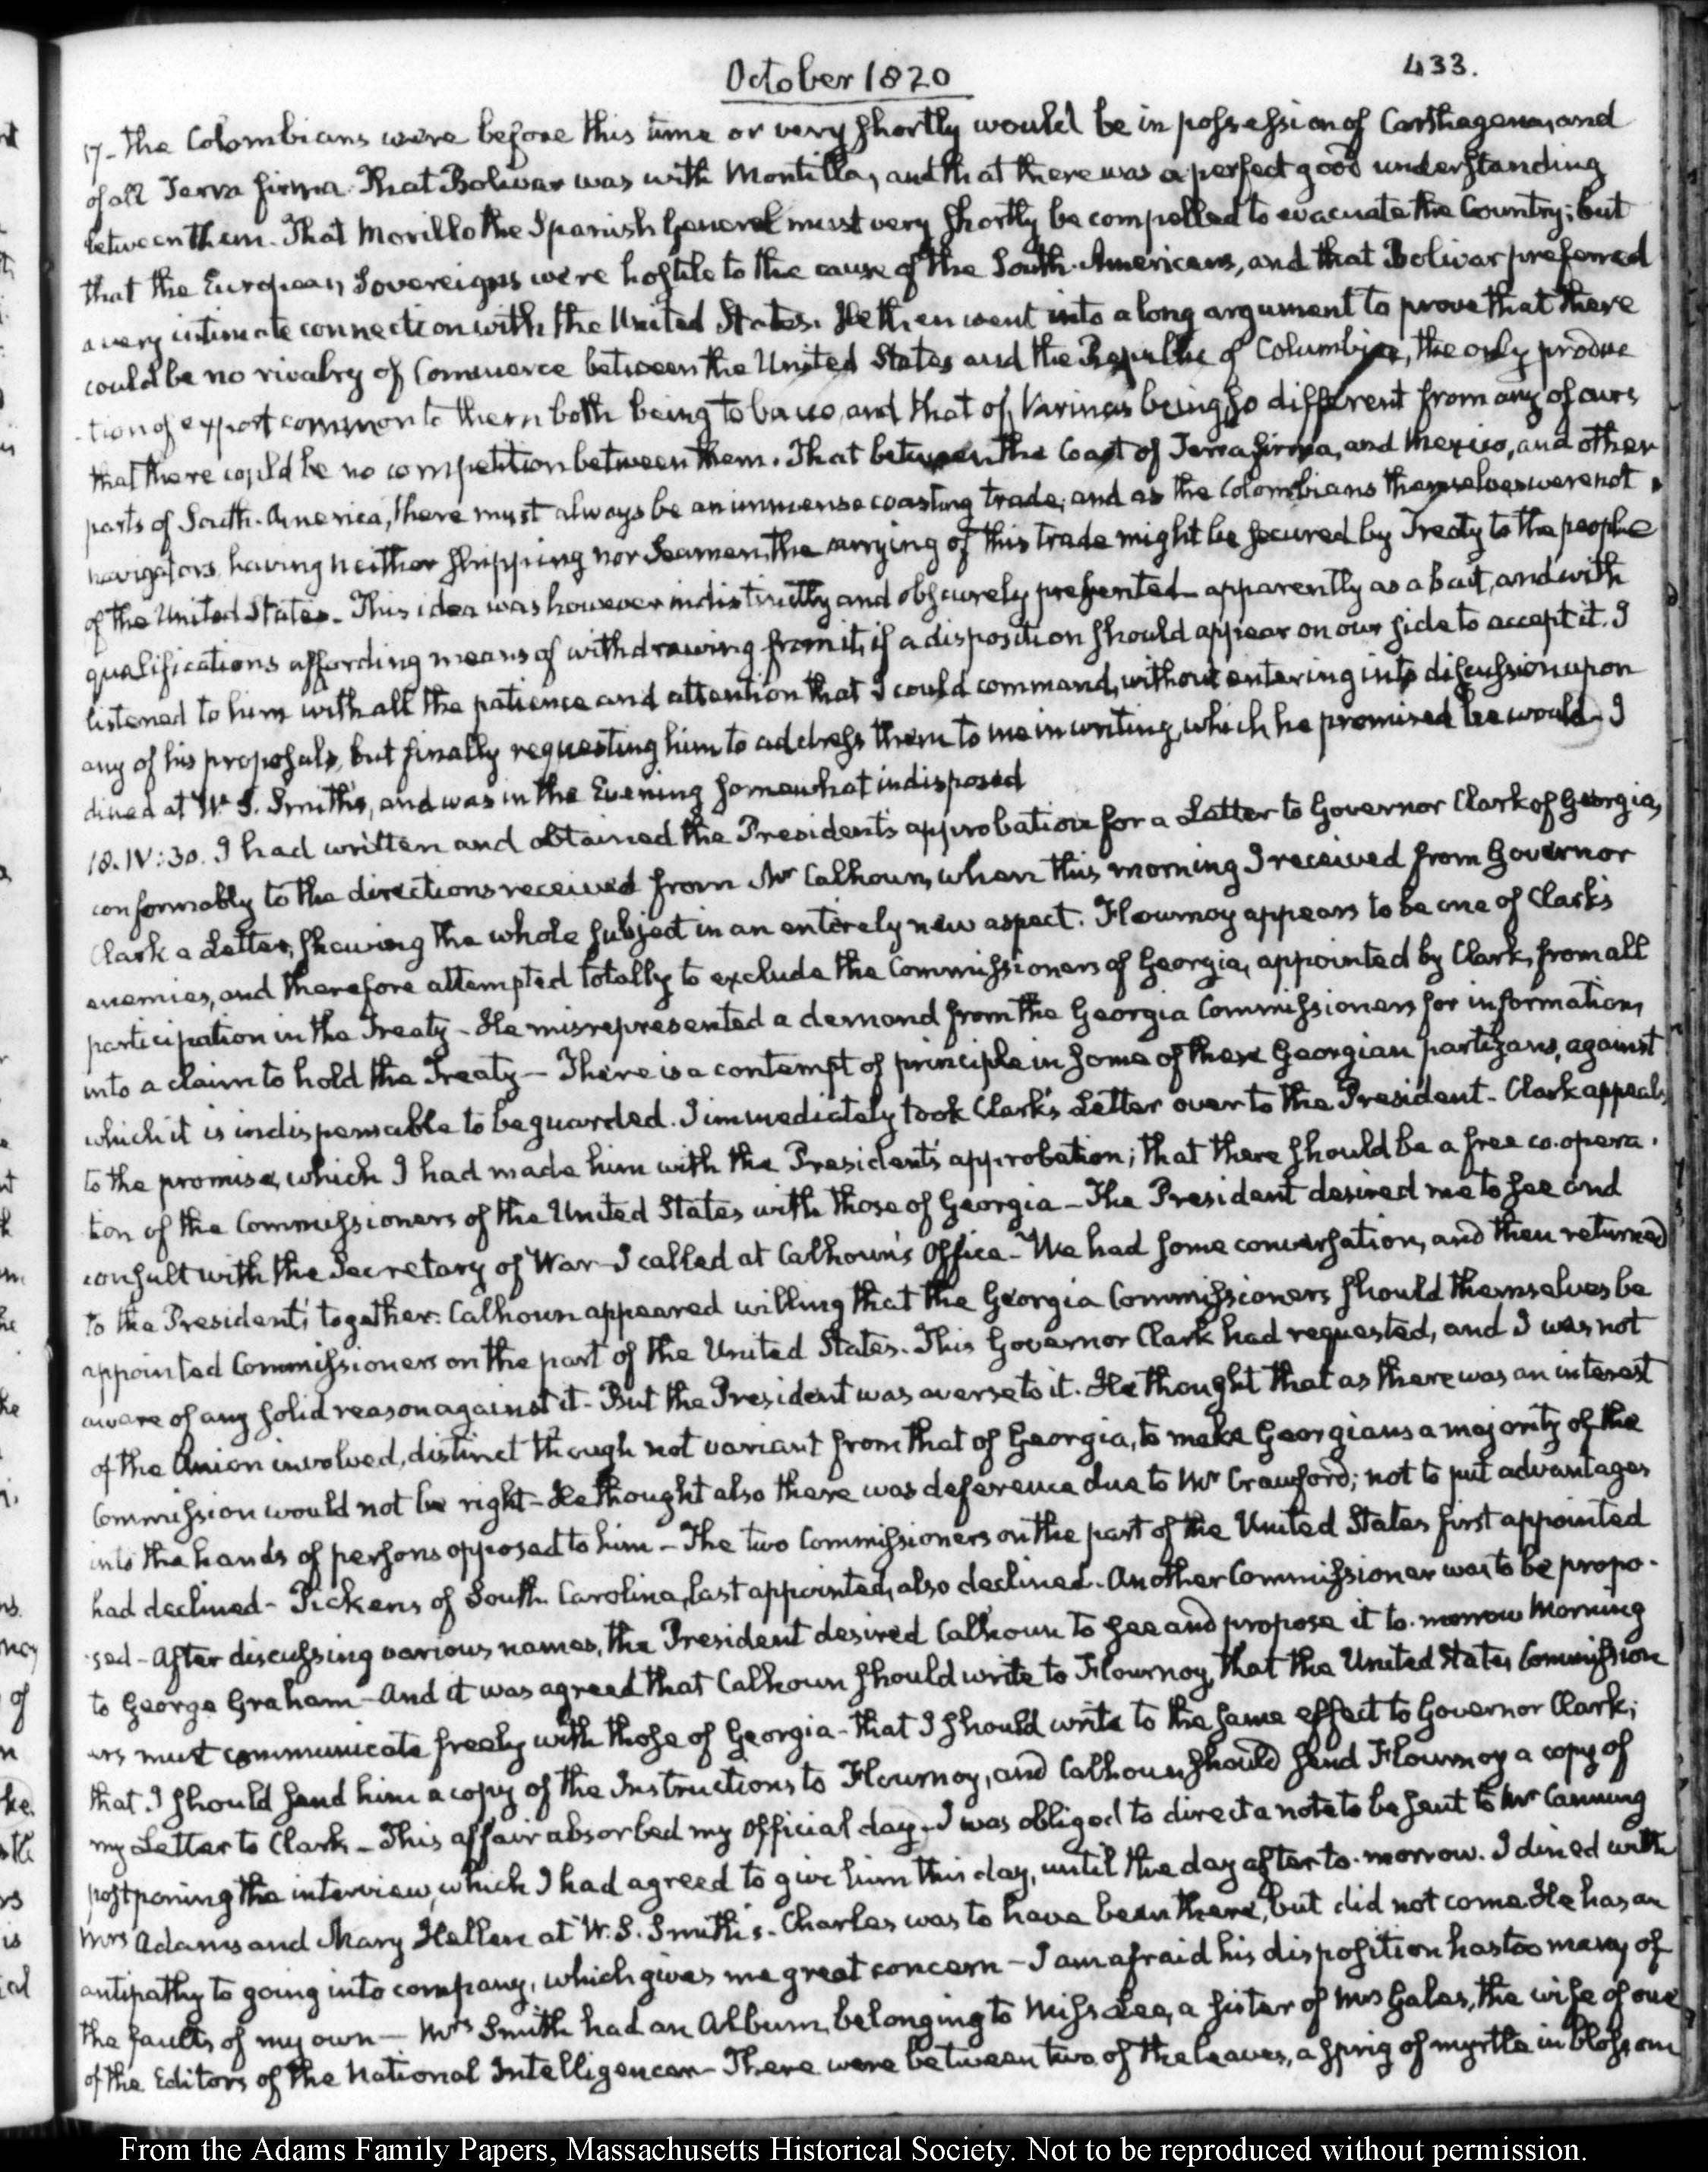 October 1820
433.
17- the Colombians were before this time or very shortly would be in possession of Carthagena, and
of all Terra firma. That Bolivar was with Montilla, and that there was a perfect good understanding
between them. That Morillo the Spanish General must very shortly be compelled to evacuate the Country; but
that the European Sovereigns were hostile to the cause of the South-Americans, and that Bolivar preferred
a very intimate connection with the United States. He then went into a long argument to prove that there
could be no rivalry of Commerce between the United States and the Republic of Columbia, the only produc
-tion of export common to them both being tobacco, and that of Varinas being so different from any of ours
that there could be no competition between them. That between the Coast of Terra firma, and Mexico, and other
parts of South-America, there must always be an immense coasting trade; and as the Colombians themselves were not
navigators, having neither shipping nor Seamen, the carrying of this trade might be secured by Treaty to the people
of the United States. This idea was however indistinctly and obscurely presented apparently as a bait, and with
qualifications affording means of withdrawing from it, if a disposition should appear on our side to accept it. I
listened to him with all the patience and attention that I could command, without entering into discussion upon
any of his proposals, but finally requesting him to address them to me in writing, which he promised he would- I
dined at W. S. Smith's, and was in the Evening somewhat indisposed
18. IV:30. I had written and obtained the President's approbation for a Letter to Governor Clark of Georgia,
conformably to the directions received from Mr Calhoun, when this morning I received from Governor
Clark a Letter, shewing the whole subject in an entirely new aspect. Flournoy appears to be one of Clark's
enemies, and therefore attempted totally to exclude the Commissioners of Georgia, appointed by Clark, from all
participation in the Treaty- He misrepresented a demand from the Georgia Commissioners for information,
into a claim to hold the Treaty- There is a contempt of principle in some of these Georgian partizans, against
which it is indispensable to be guarded. I immediately took Clark's Letter over to the President- Clark appeals
to the promise, which I had made him with the President's approbation; that there should be a free co-opera-
tion of the Commissioners of the United States with those of Georgia- The President desired me to see and
consult with the Secretary of War- I called at Calhoun's Office- We had some conversation, and then returned
to the President's together. Calhoun appeared willing that the Georgia Commissioners should themselves be
appointed Commissioners on the part of the United States. This Governor Clark had requested, and I was not
aware of any solid reason against it- But the President was averse to it. He thought that as there was an interest
of the Union involved, distinct though not variant from that of Georgia, to make Georgians a majority of the
Commission would not be right- He thought also there was deference due to Mr Crawford; not to put advantages
into the hands of persons opposed to him- The two Commissioners on the part of the United States first appointed
had declined- Pickens of South Carolina, last appointed, also declined. Another Commissioner was to be propo-
-sed- After discussing various names, the President desired Calhoun to see and propose it to-morrow Morning
to George Graham- And it was agreed that Calhoun should write to Flournoy, that the United States Commission
ers must communicate freely with those of Georgia- that I should write to the same effect to Governor Clark;
that I should send him a copy of the Instructions to Flournoy, and Calhoun should send Flournoy a copy of
my Letter to Clark- This affair absorbed my Official day. I was obliged to direct a note to be sent to Mr Canning
postponing the interview, which I had agreed to give him this day, until the day after to-morrow. I dined with
Mrs Adams and Mary Hellen at W. S. Smith's. Charles was to have been there, but did not come. He has an
antipathy to going into company, which gives me great concern- I am afraid his disposition has too many of
the faults of my own- Mrs Smith had an Album, belonging to Miss Lee, a sister of Mrs Gales, the wife of one
of the Editors of the National Intelligencer- There were between two of the leaves, a sprig of myrtle in blossom
From the Adams Family Papers, Massachusetts Historical Society. Not to be reproduced without permission.